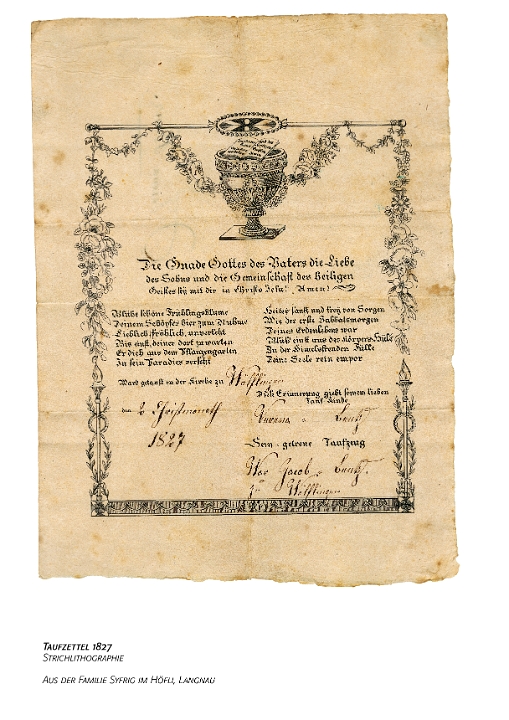 Die Gnade Gottes des Vaters die Liebe
des Sohns und die Gemeinschaft der Heiligen
Geistes sÿ mit dir in Christo Jesu! Amen!
Blühe schöne Frühlingsblume
Deinem Schöpfer hier zum Ruhme
Lieblich, fröhlich, unverletzt
Bis einst, deiner dort zu warten
Er dich aus dem Pflanzengarten
In sein Paradies versetzt
Heiter sanft und froÿ von Sorgen
Wie der erste Sabbatsmorgen
Deines Erdenlebens war
Blüh einst aus des Körpers Hülle
Zu der Himmels Fülle
Deine Seele rein empor
Ward getauft in der Kirche zu Wülflingen
Diese Erinnerung giebt seinem lieben
Tauf-Kinde
den 2 Christmonath
1827
Verena
Sein getreue Taufzeug
Jacob
zu Wülflingen
Taufzettel 1827
Strichlithographie
Aus der Familie Syfrig im Höfli, Langnau